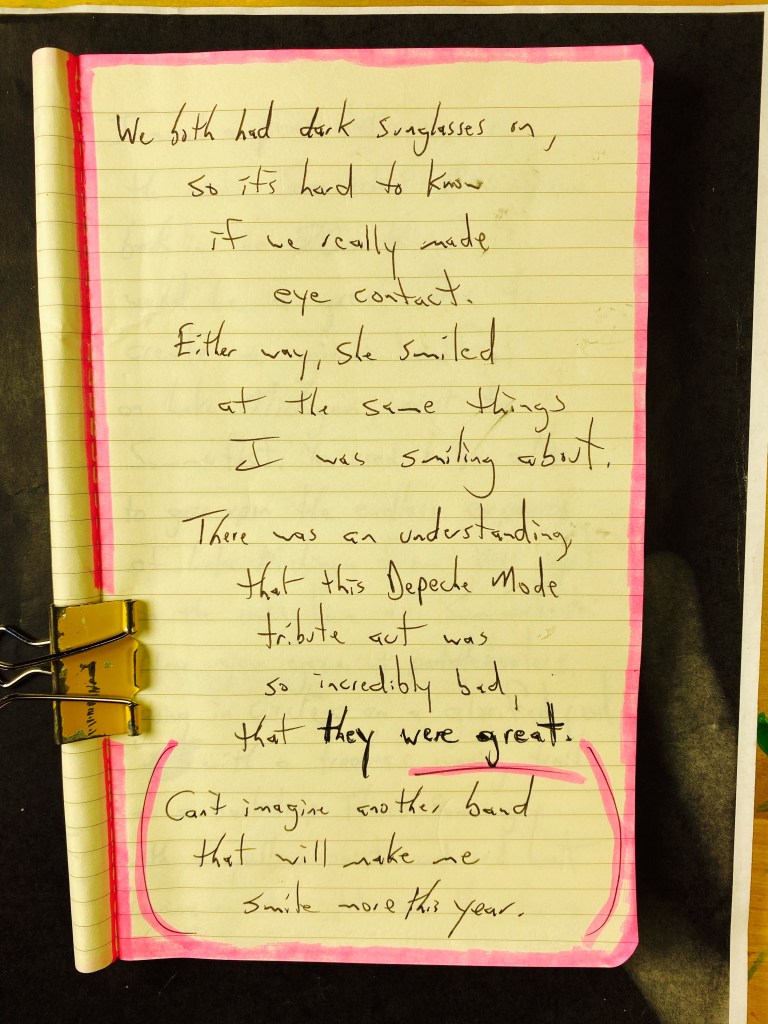 We both had dark sunglasses on,
so it's hard to know
if we really made
eye contact.
Either way, she smiled
at the same things
I was smiling about.
There was an understanding,
that this Depeche Mode
tribute act was
so incredibly bad,
that they were great.
(Can't imagine another band
that will make me
smile more this year.)